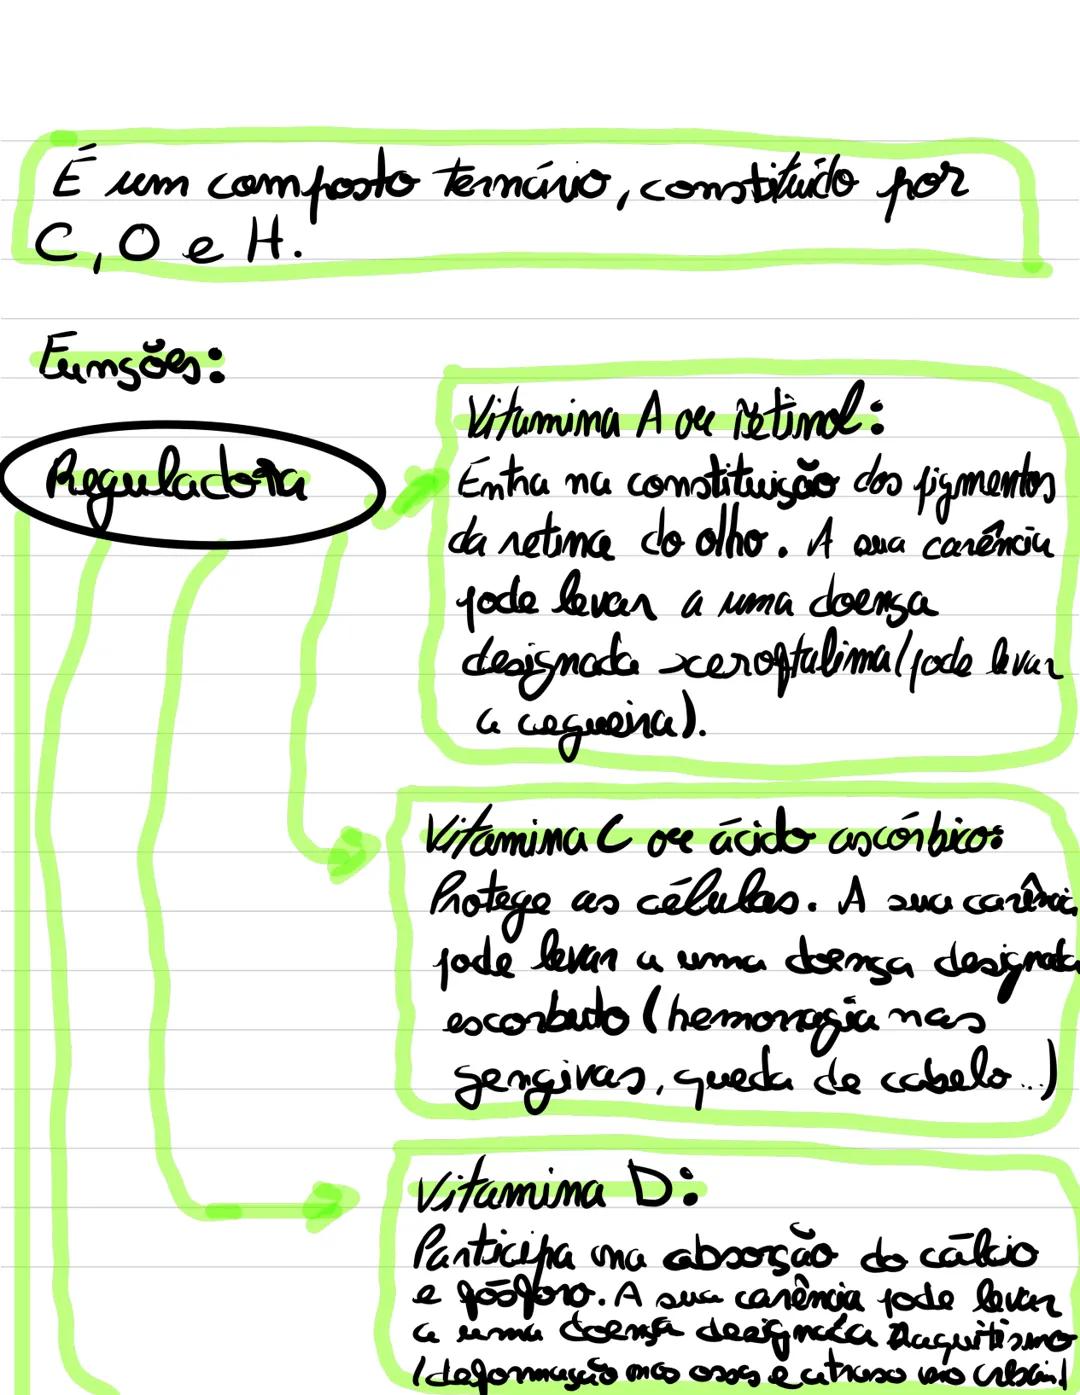 É um composto ternário, constituído por
C, O e H.
Funções:
Reguladora
Vitamina A ou retinol:
Entra na constituição dos pigmentos
da retina do olho. A sua carência
pode levar a uma doença
designada xeroftalima (pode levar
a cegueira).
Vitamina C ou ácido ascórbico:
Protege as células. A sua carência
pode levar a uma doença designada
escorbuto (hemorragia nas
gengivas, queda de cabelo...)
Vitamina D:
Participa na absorção do cálcio
e fósforo. A sua carência pode levar
a uma doença designada Raquitismo
(deformação nos ossos e atraso no